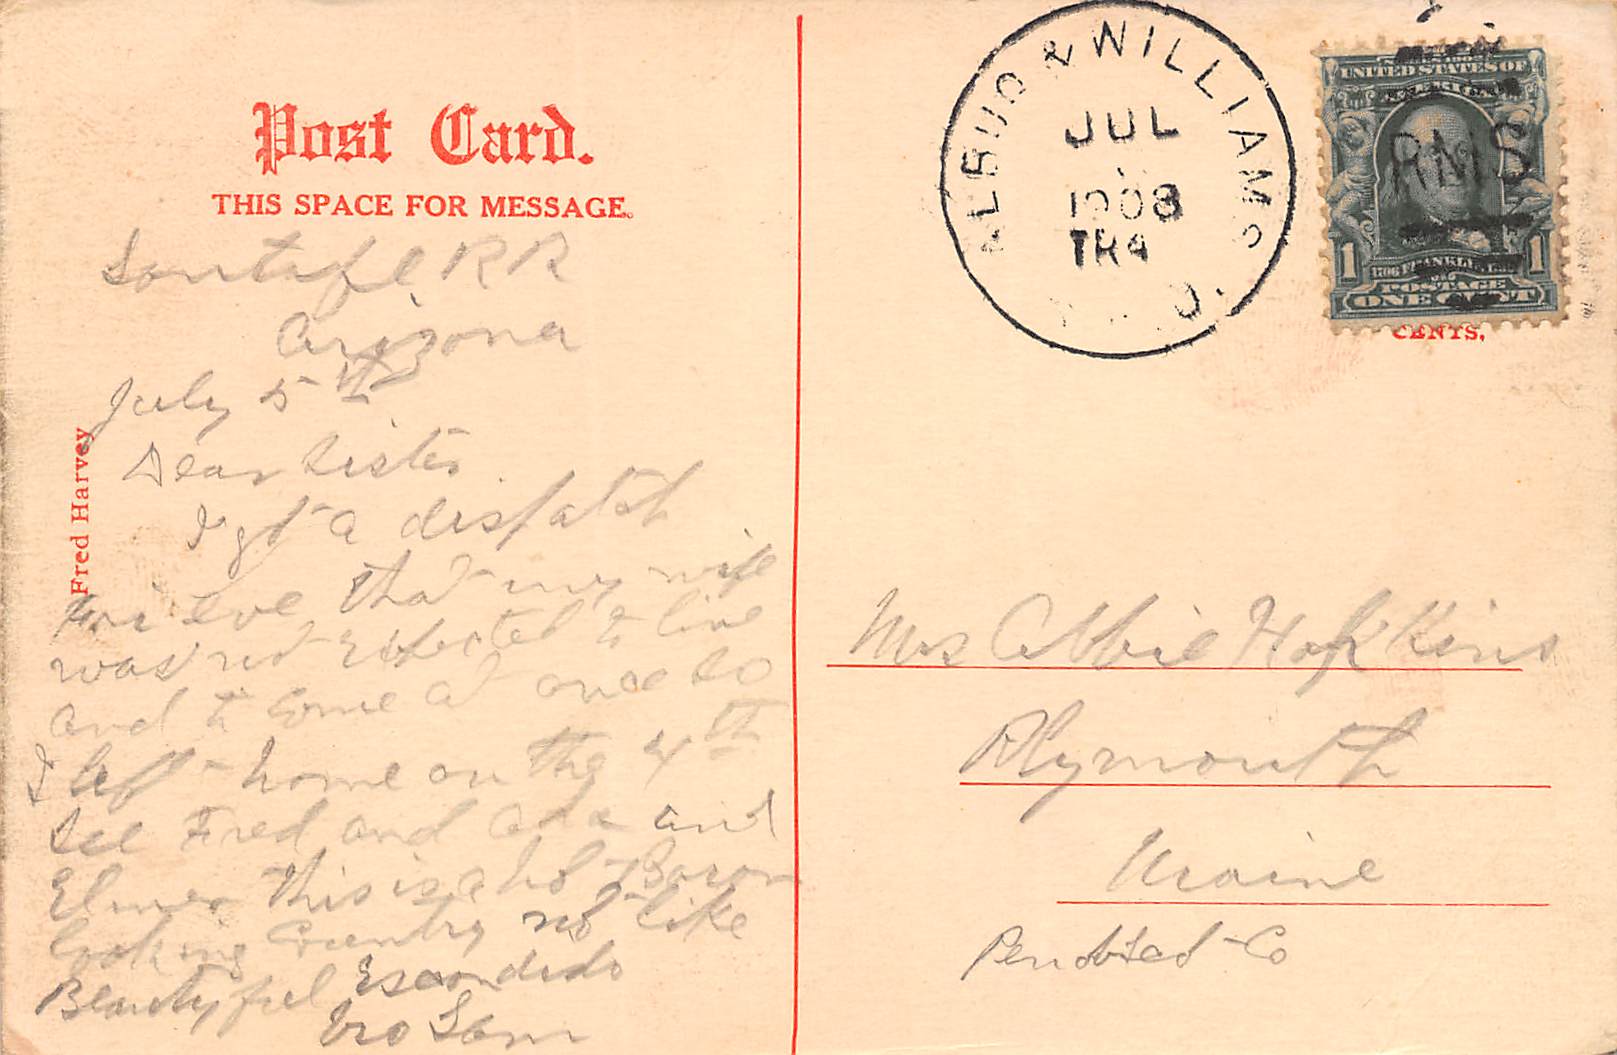 Post Card.
THIS SPACE FOR MESSAGE.
Fred Harvey
Santafe, RR
Arizona
July 5th
Dear Sister
I got a dispatch
eve that my wife
was not expected to live
and to come at once so
I left home on the 4th
See Fred and and
Elmer this is a hot Baron
looking Country not like
Beautyful Escondido
Bro Sam
ALBUQ & WILLIAMS
JUL
1908
TR4
UNITED STATES OF
RMS
1
1
1706 FRANKLIN
POSTAGE
ONE CENT
CENTS.
Mrs Abbie Hopkins
Plymouth
Maine
Penobscot Co